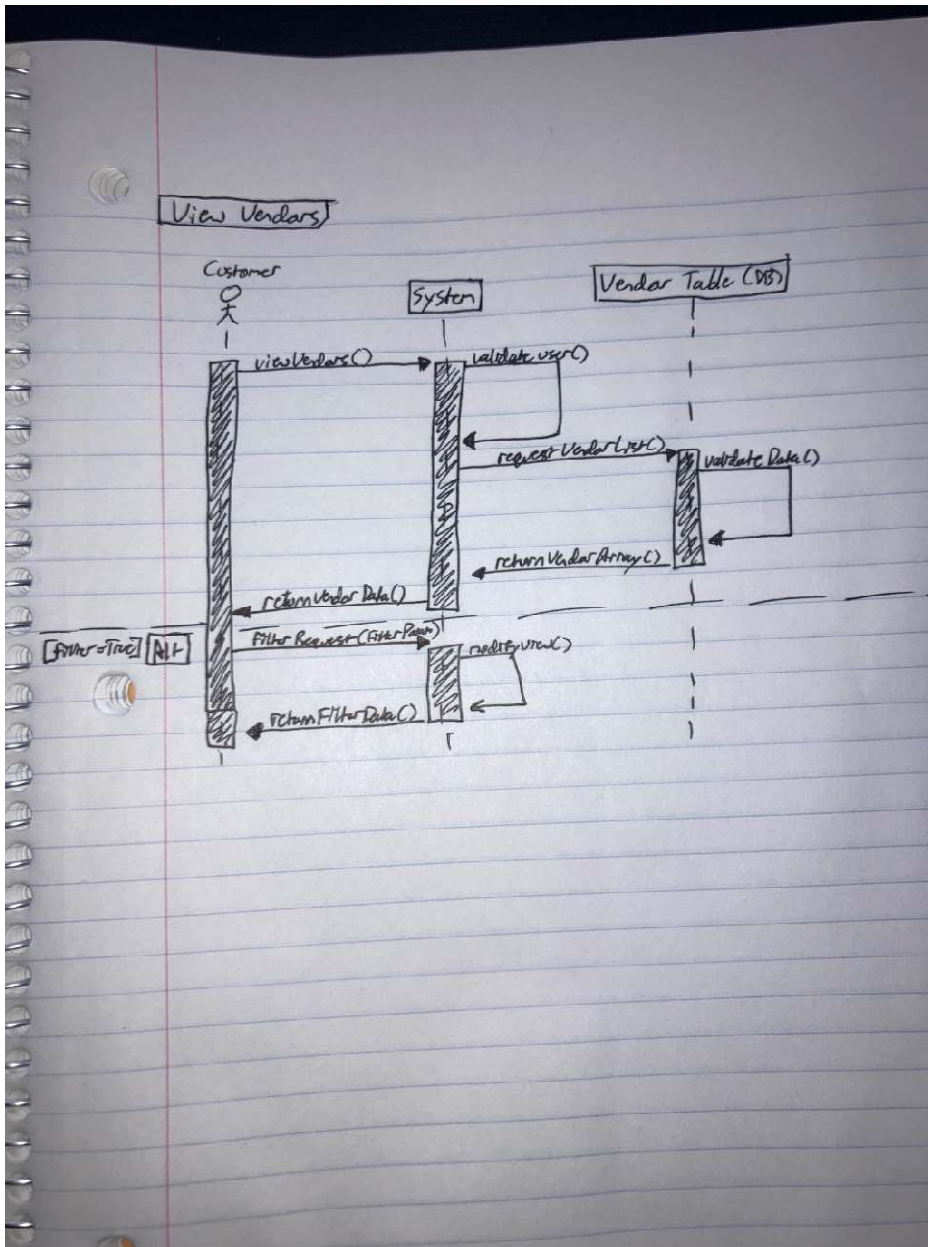 View Vendors
Customer
System
Vendor Table (DB)
viewVendors()
validate user()
requestVendorList()
validate Data()
returnVendorArray()
returnVendorData()
[filter=True] Alt
Filter Request (Filter Param)
modify view()
returnFilterData()